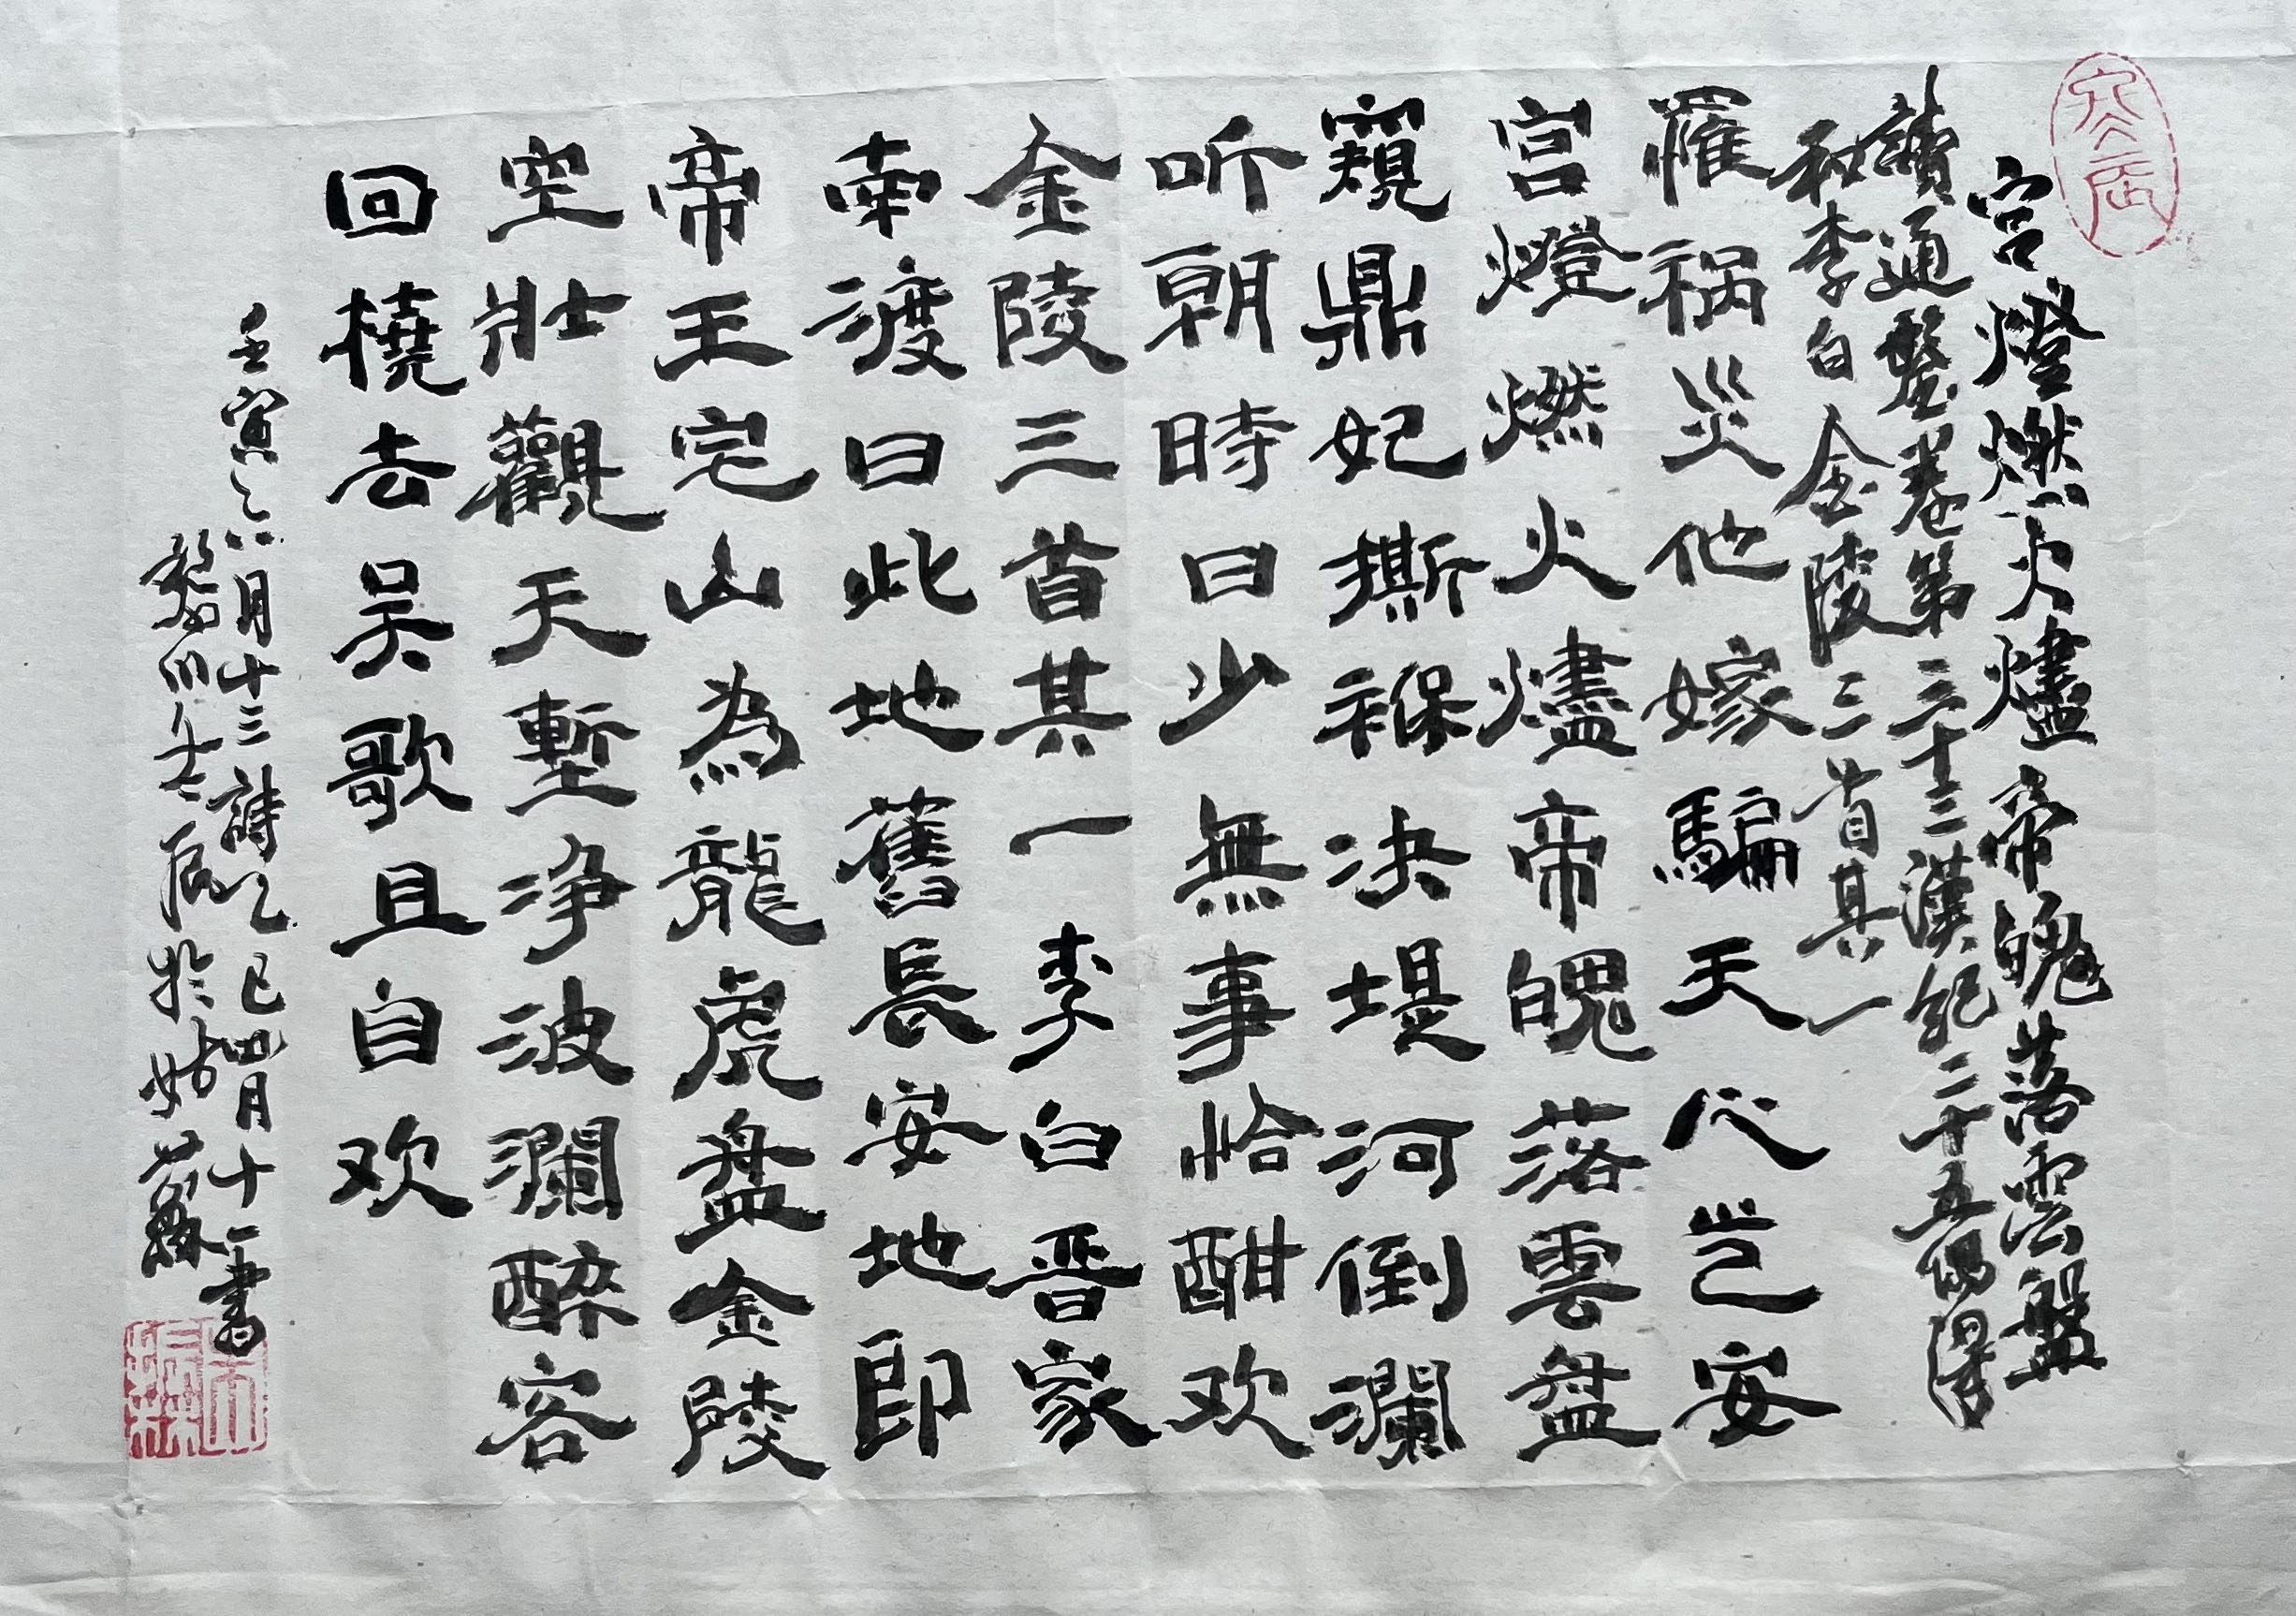 宫燈燃火燼帝魄落雲盤
讀通鑒卷第三十三漢紀二十五偶得
和李白金陵三首其一
罹祸災他嫁騙天心岂安
宫燈燃火燼帝魄落雲盘
窺鼎妃撕褓决堤河倒瀾
听朝時日少無事恰酣欢
金陵三首其一李白晋家
南渡日此地舊長安地即
帝王宅山為龍虎盘金陵
空壯觀天塹净波瀾醉客
回橈去吴歌且自欢
壬寅六月十三詩乙巳四月十一書
於姑蘇